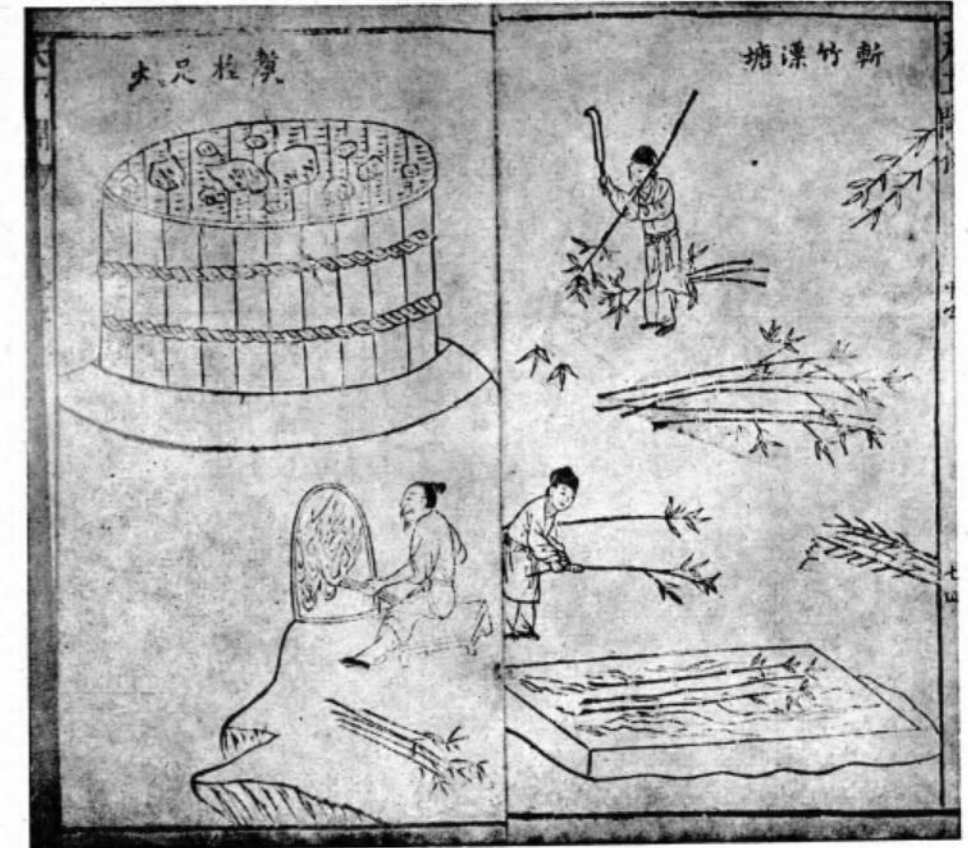 斬竹漂塘
煮楻足火